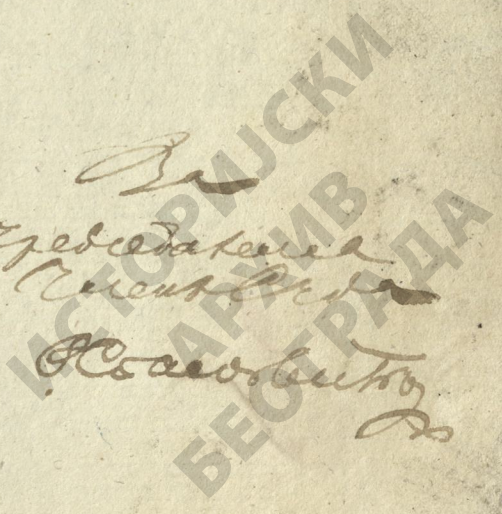 За
Председателя
Членъ Суда
ИСТОРИЈСКИ
АРХИВ
БЕОГРАДА